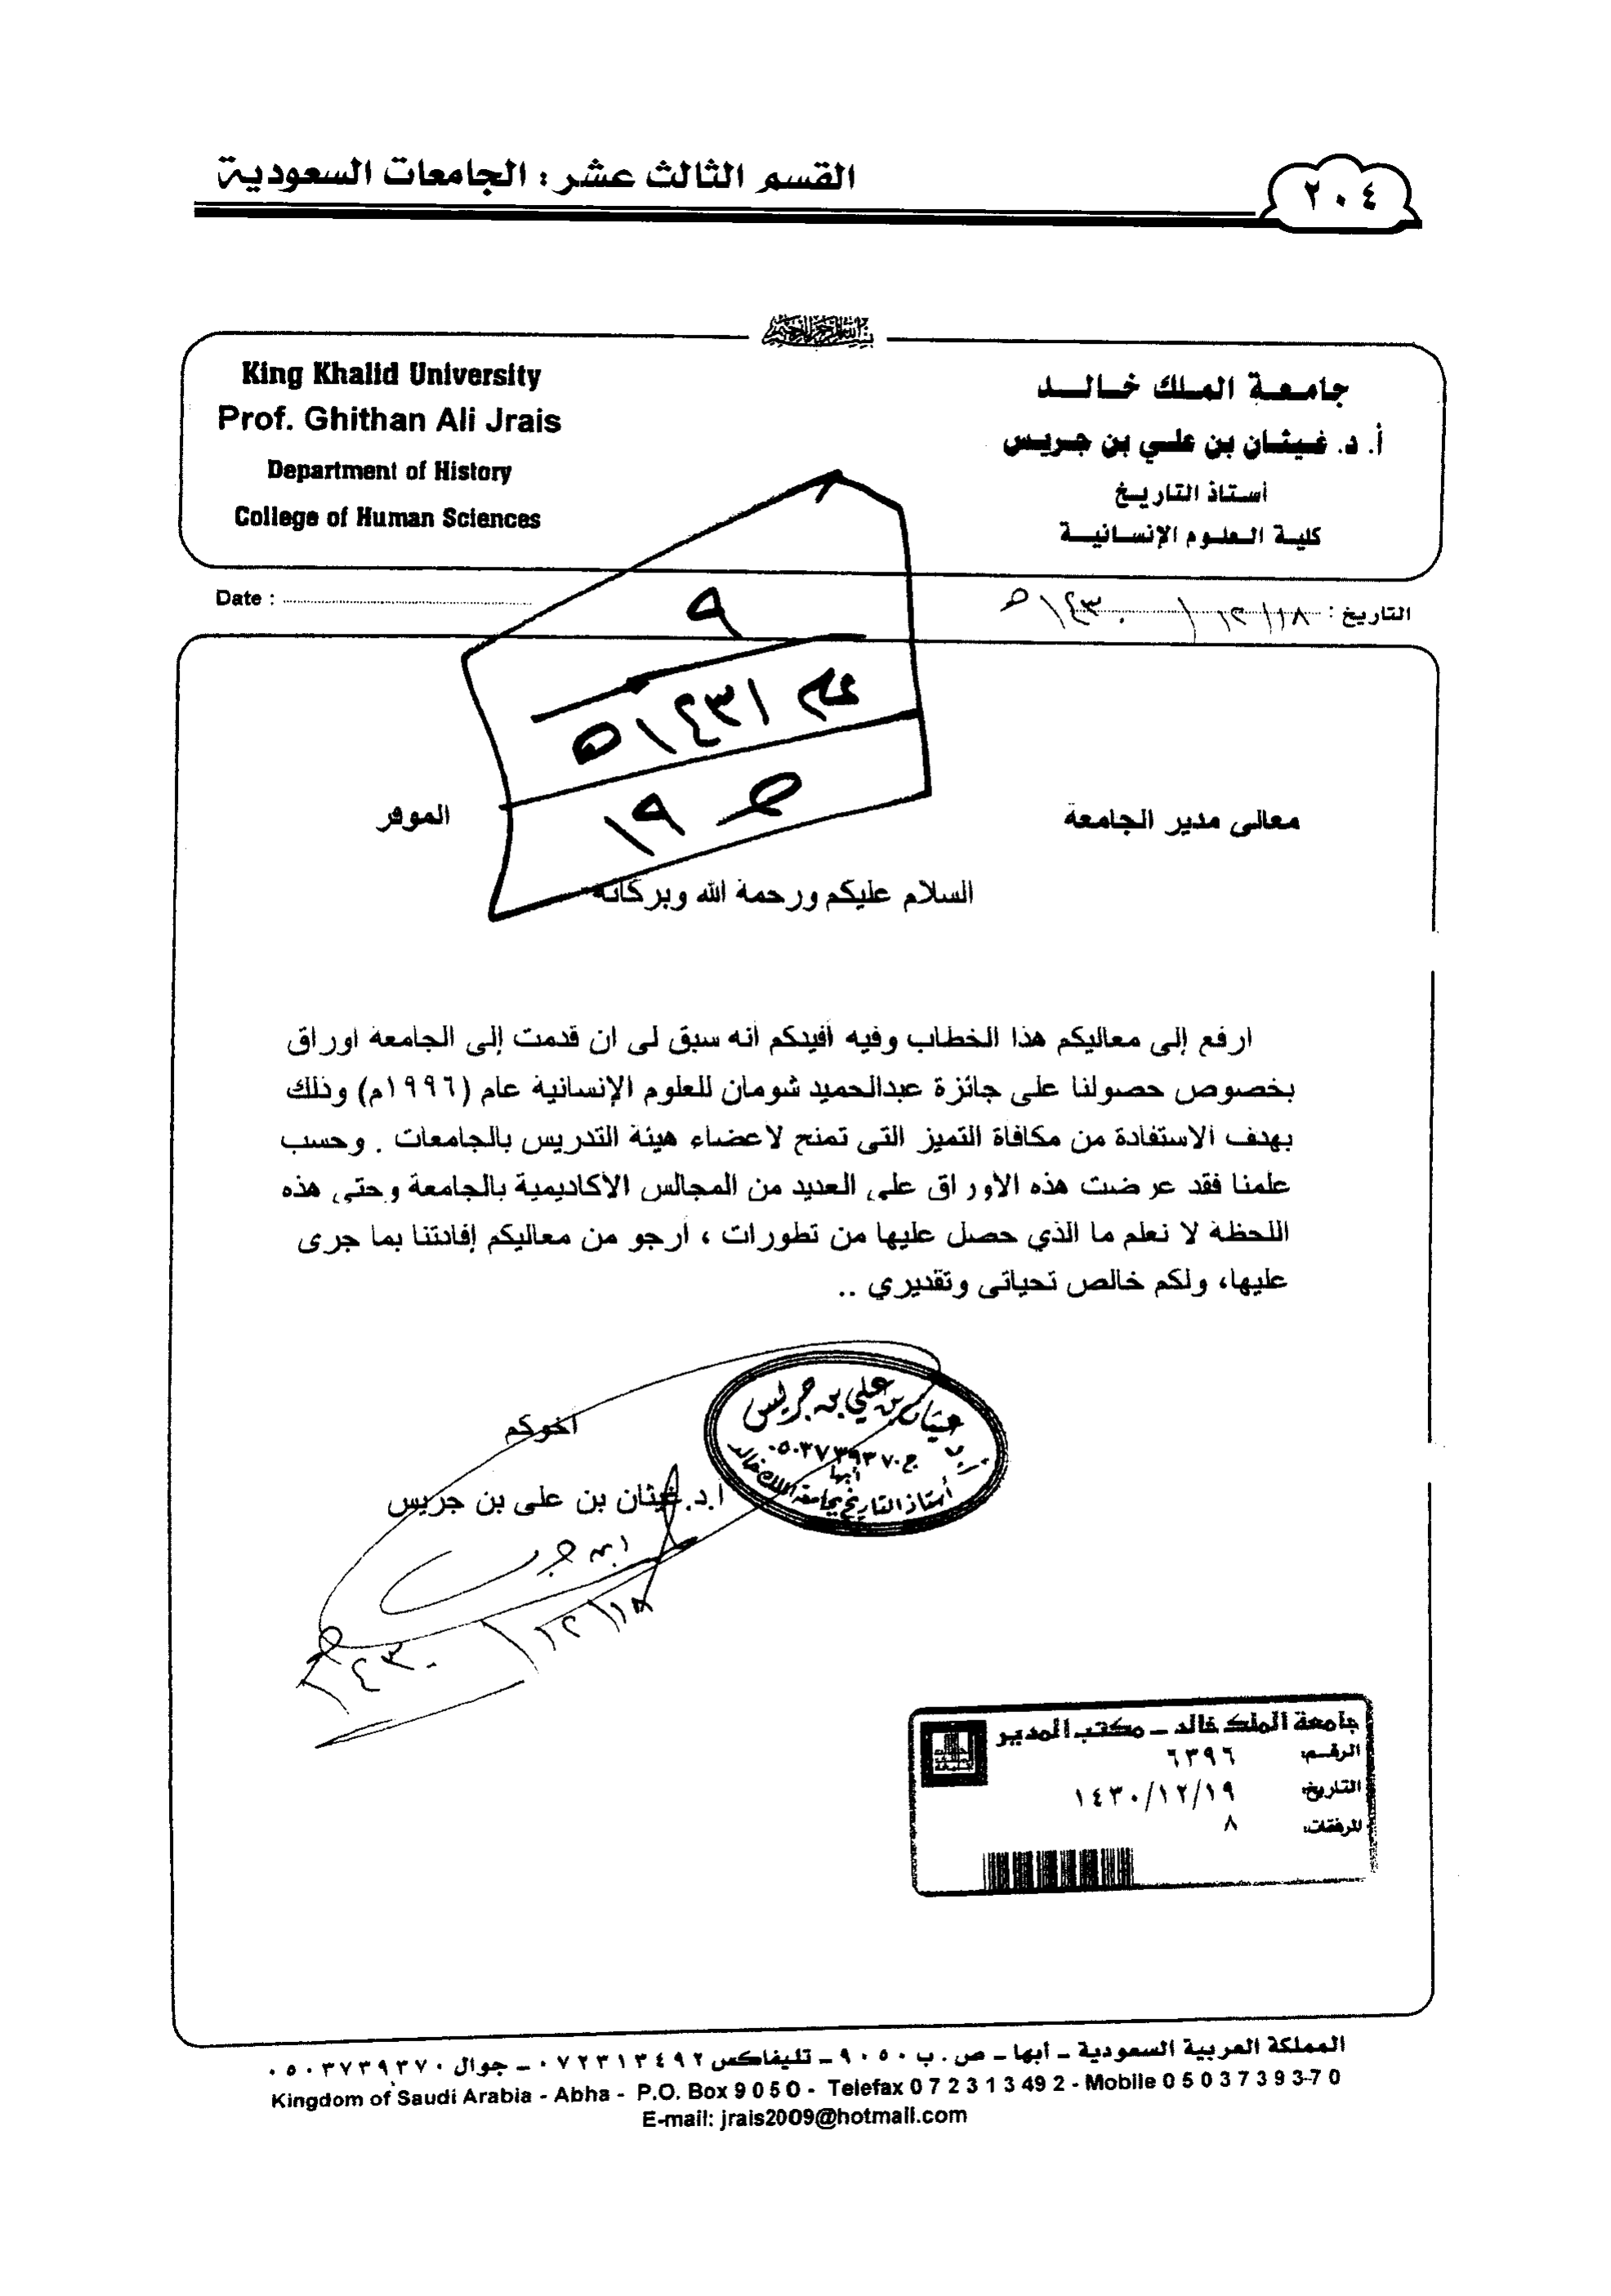 القسم الثالث عشر : الجامعات السعودية
٢٠٤
بسم الله الرحمن الرحيم
King Khalid University
Prof. Ghithan Ali Jrais
Department of History
College of Human Sciences
جامعة الملك خالد
أ. د. غيثان بن علي بن جريس
أستاذ التاريخ
كلية العلوم الإنسانية
Date :
التاريخ : ١٨/١٢/١٤٣٠هـ
٩
عام ١٤٣١هـ
ص ١٩
معالى مدير الجامعة الموقر
السلام عليكم ورحمة الله وبركاته
ارفع إلى معاليكم هذا الخطاب وفيه أفيدكم أنه سبق لى ان قدمت إلى الجامعة اوراق
بخصوص حصولنا على جائزة عبدالحميد شومان للعلوم الإنسانية عام (١٩٩٦م) وذلك
بهدف الاستفادة من مكافأة التميز التى تمنح لأعضاء هيئة التدريس بالجامعات . وحسب
علمنا فقد عرضت هذه الأوراق على العديد من المجالس الأكاديمية بالجامعة وحتى هذه
اللحظة لا نعلم ما الذي حصل عليها من تطورات ، أرجو من معاليكم إفادتنا بما جرى
عليها، ولكم خالص تحياتى وتقديري ..
أخوكم
ا.د. غيثان بن على بن جريس
ابن جريس
١٨/١٢/١٤٣٠هـ
أ.د. غيثان بن علي بن جريس
ج.٠٥٠٣٧٣٩٣٧٠
أبها
أستاذ التاريخ بجامعة الملك خالد
جامعة الملك خالد – مكتب المدير
الرقم: ٦٣٩٦
التاريخ: ١٤٣٠/١٢/١٩
المرفقات: ٨
المملكة العربية السعودية – أبها – ص . ب ٩٠٥٠ – تليفاكس ٠٧٢٣١٣٤٩٢ – جوال ٠٥٠٣٧٣٩٣٧٠
Kingdom of Saudi Arabia - Abha - P.O. Box 9 0 5 0 - Telefax 0 7 2 3 1 3 49 2 - Mobile 0 5 0 3 7 3 9 3-7 0
E-mail: jrais2009@hotmail.com